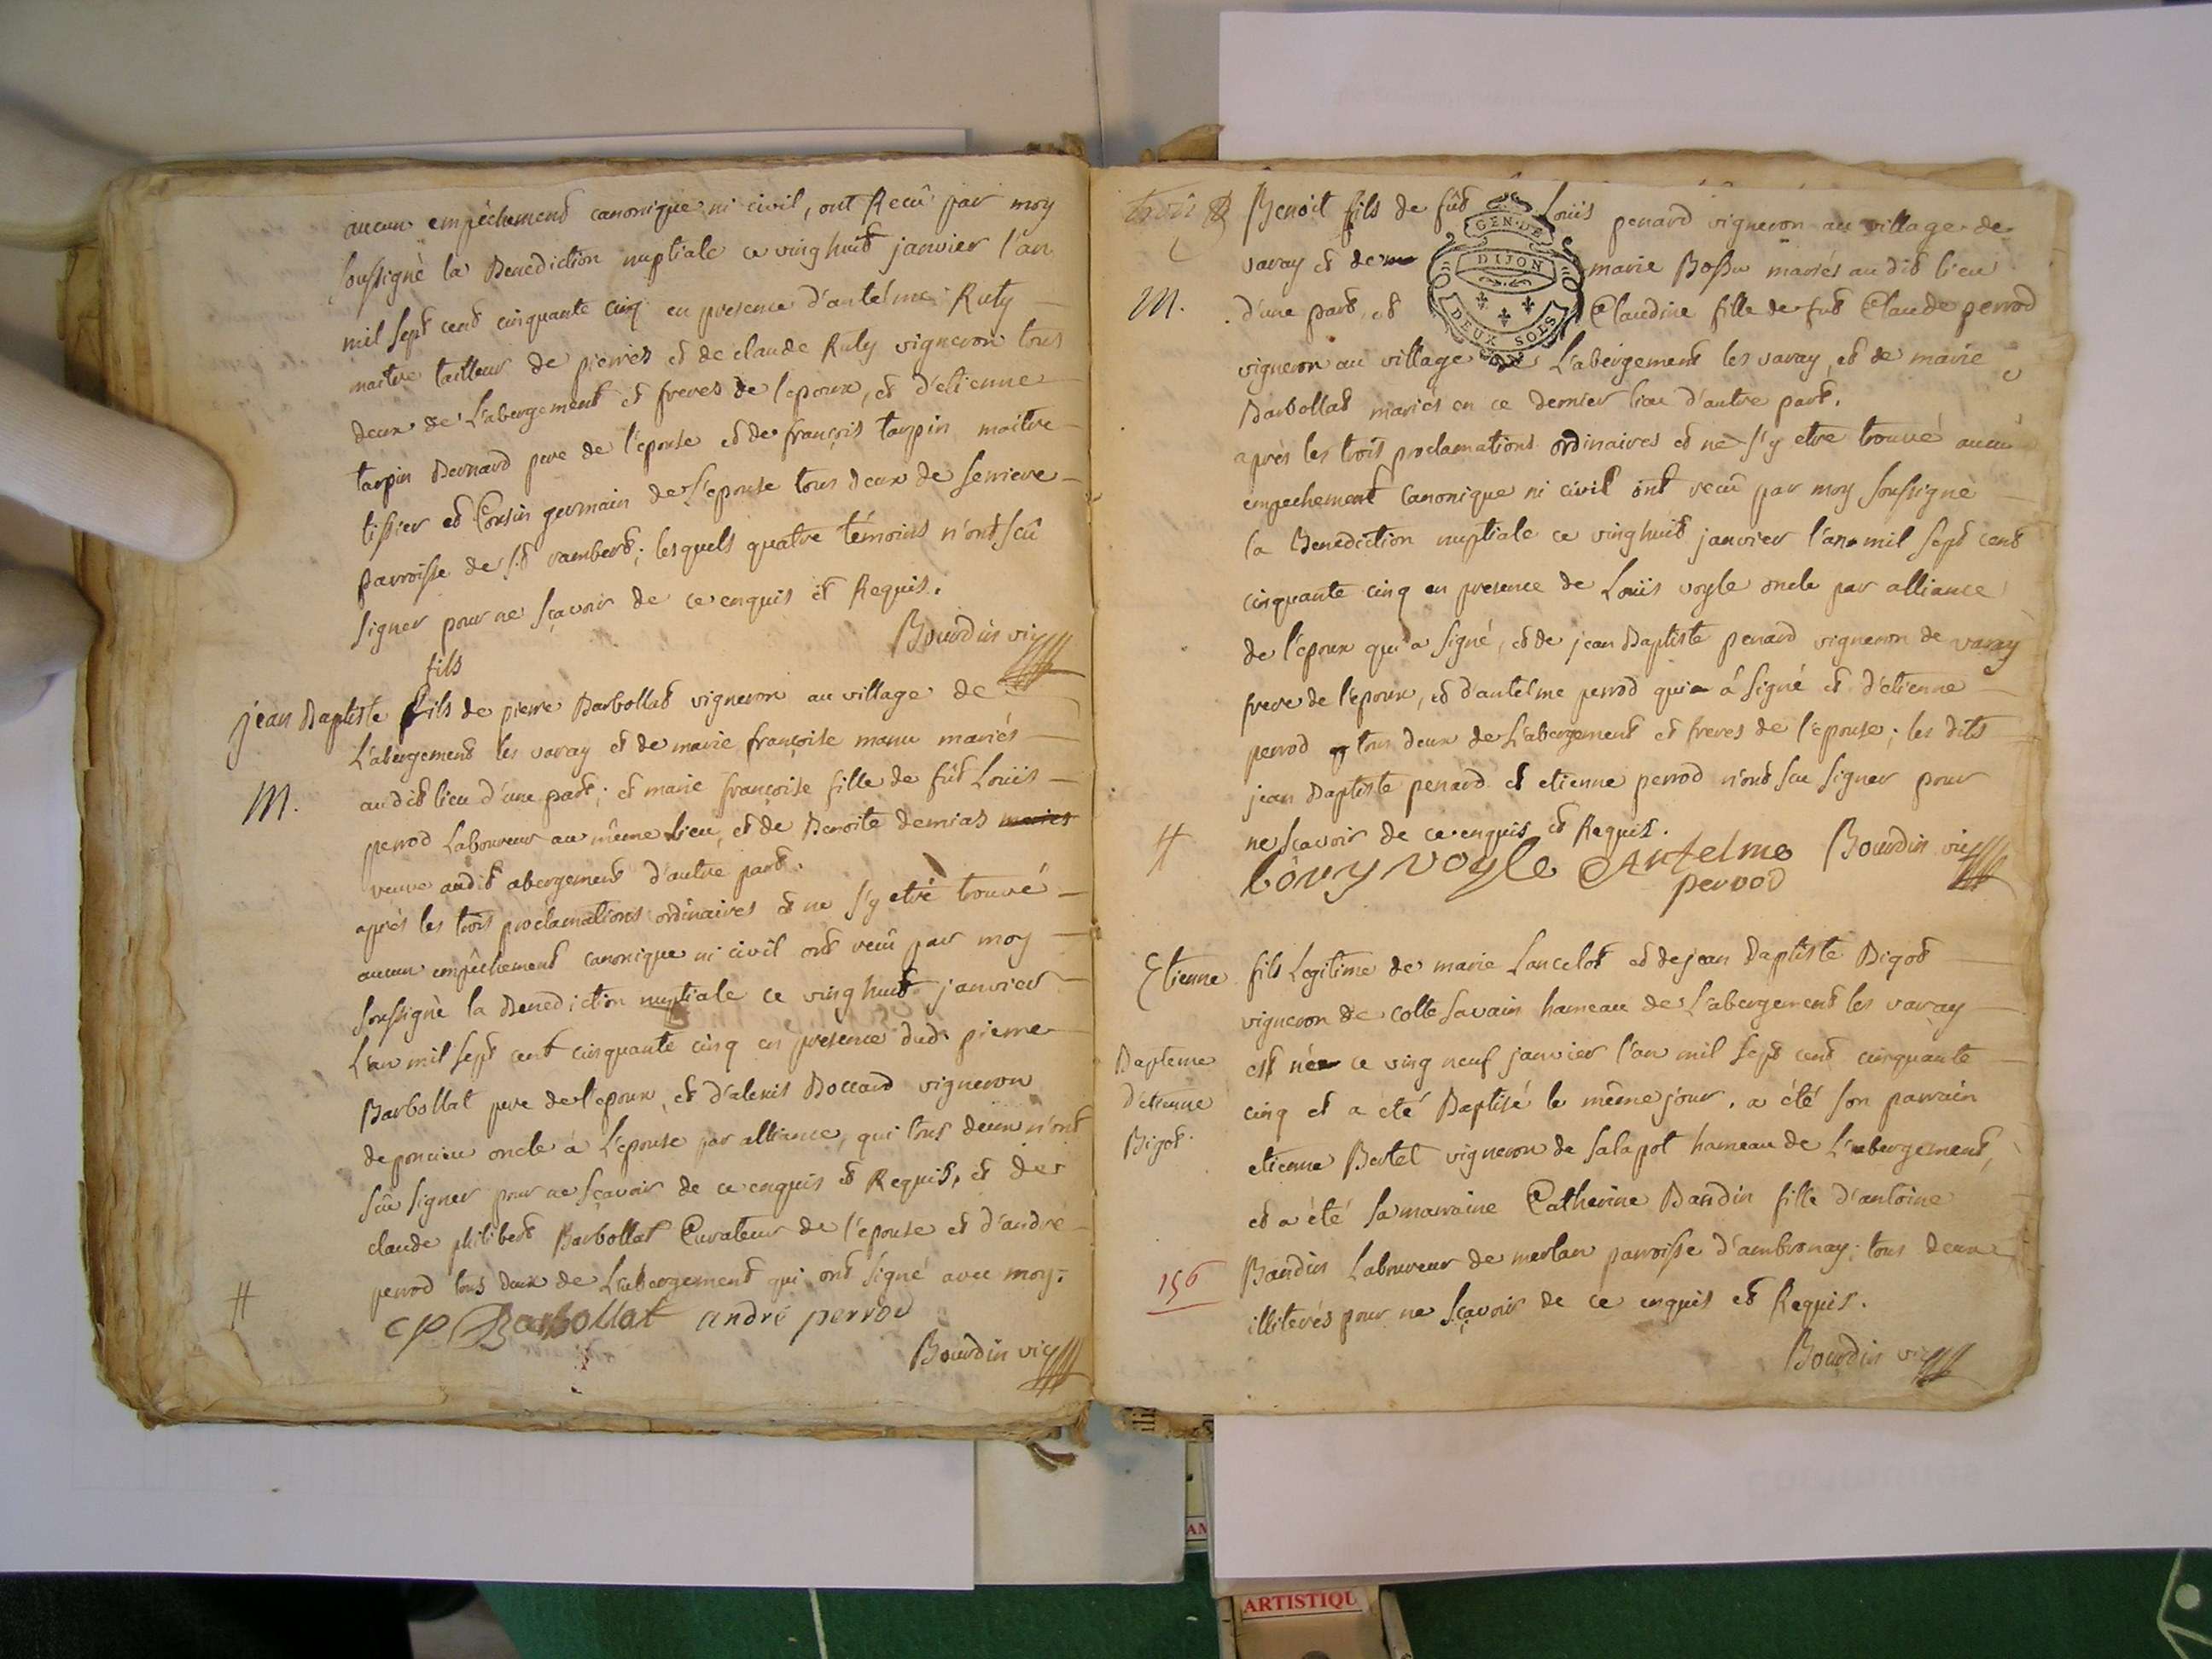 aucun empêchement canonique ni civil, ont Recû par moy
soussigné la Benediction nuptiale ce vinghuit janvier l'an
mil sept cent cinquante cinq en presence d'antelme Ruty
maitre tailleur de pierres et de claude Ruty vigneron tous
deux de L'abergement et freres de l'epoux, et d'etienne
tarpin Bernard pere de l'epouse et de françois tarpin maitre
tissier et Cousin germain de L'epouse tous deux de
parroisse de st rambert; lesquels quatre témoins n'ont sçû
signer pour ne sçavoir de ce enquis et Requis.
Bourdin vic
fils
jean Baptiste fils de pierre Barbollat vigneron au village de
L'abergement les varay et de marie françoise manu mariés
M. audit lieu d'une part; et marie françoise fille de fût Louïs
perrod Laboureur au même Lieu, et de Benoite demias maries
veuve audit abergement d'autre part.
après les trois proclamations ordinaires et ne s'y etre trouvé
aucun empêchement canonique ni civil ont recû par moy
soussigné la Benediction nuptiale ce vinghuit janvier
L'an mil sept cent cinquante cinq en presence dud. pierre
Barbollat pere de l'epoux, et d'alexis Boccard vigneron
de poncieu oncle à L'epouse par alliance, qui tous deux n'ont
sçû signer pour ne sçavoir de ce enquis et Requis, et de
claude philibert Barbollat Curateur de l'epouse et d'andré
perrod tous deux de L'abergement qui ont signé avec moy.
cp Barbollat andré perrod
Bourdin vic
trois
Benoit fils de fût Louïs penard vigneron au village de
varay et de marie Bossu mariés audit lieu
M. d'une part, et Claudine fille de fut Claude perrod
GEN. DE
DIJON
DEUX SOLS
vigneron au village de L'abergement les varay, et de marie
Barbollat mariés en ce dernier lieu d'autre part.
après les trois proclamations ordinaires et ne s'y etre trouvé aucun
empechement Canonique ni civil ont recû par moy soussigné
la Benediction nuptiale ce vinghuit janvier l'an mil sept cent
cinquante cinq en presence de Louïs voyle oncle par alliance
de l'epoux qui a signé, et de jean Baptiste penard vigneron de varay
frere de l'epoux, et d'antelme perrod qui a signé et d'etienne
perrod tous deux de L'abergement et freres de l'epouse; les dits
jean Baptiste penard et etienne perrod n'ont scu signer pour
ne sçavoir de ce enquis et Requis.
Louy voyle Antelme perrod Bourdin vic
Etienne fils Legitime de marie Lancelot et de jean Baptiste Bigot
vigneron de colte savain hameau de L'abergement les varay
Bapteme d'etienne Bigot.
est né ce vingneuf janvier l'an mil sept cent cinquante
cinq et a été Baptisé le même jour. a été son parrain
etienne Bertet vigneron de salapot hameau de L'abergement,
et a été sa marraine Catherine Baudin fille d'antoine
156
Baudin Laboureur de merlan parroisse d'ambronay; tous deux
illiterés pour ne sçavoir de ce enquis et Requis.
Bourdin vic
ARTISTIQU